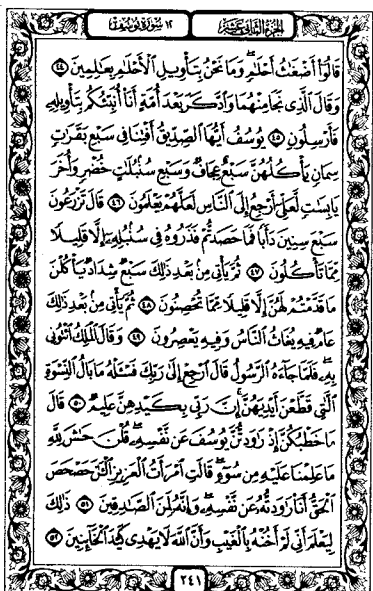 الجزء الثاني عشر ١٢ سورة يوسف
قَالُوٓا۟ أَضْغَـٰثُ أَحْلَـٰمٍ ۖ وَمَا نَحْنُ بِتَأْوِيلِ ٱلْأَحْلَـٰمِ بِعَـٰلِمِينَ ٤٤
وَقَالَ ٱلَّذِى نَجَا مِنْهُمَا وَٱدَّكَرَ بَعْدَ أُمَّةٍ أَنَا۠ أُنَبِّئُكُم بِتَأْوِيلِهِۦ
فَأَرْسِلُونِ ٤٥ يُوسُفُ أَيُّهَا ٱلصِّدِّيقُ أَفْتِنَا فِى سَبْعِ بَقَرَٰتٍ
سِمَانٍ يَأْكُلُهُنَّ سَبْعٌ عِجَافٌ وَسَبْعِ سُنۢبُلَـٰتٍ خُضْرٍ وَأُخَرَ
يَابِسَـٰتٍ لَّعَلِّىٓ أَرْجِعُ إِلَى ٱلنَّاسِ لَعَلَّهُمْ يَعْلَمُونَ ٤٦ قَالَ تَزْرَعُونَ
سَبْعَ سِنِينَ دَأَبًا فَمَا حَصَدتُّمْ فَذَرُوهُ فِى سُنۢبُلِهِۦٓ إِلَّا قَلِيلًا
مِّمَّا تَأْكُلُونَ ٤٧ ثُمَّ يَأْتِى مِنۢ بَعْدِ ذَٰلِكَ سَبْعٌ شِدَادٌ يَأْكُلْنَ
مَا قَدَّمْتُمْ لَهُنَّ إِلَّا قَلِيلًا مِّمَّا تُحْصِنُونَ ٤٨ ثُمَّ يَأْتِى مِنۢ بَعْدِ ذَٰلِكَ
عَامٌ فِيهِ يُغَاثُ ٱلنَّاسُ وَفِيهِ يَعْصِرُونَ ٤٩ وَقَالَ ٱلْمَلِكُ ٱئْتُونِى
بِهِۦ ۖ فَلَمَّا جَآءَهُ ٱلرَّسُولُ قَالَ ٱرْجِعْ إِلَىٰ رَبِّكَ فَسْـَٔلْهُ مَا بَالُ ٱلنِّسْوَةِ
ٱلَّـٰتِى قَطَّعْنَ أَيْدِيَهُنَّ ۚ إِنَّ رَبِّى بِكَيْدِهِنَّ عَلِيمٌ ٥٠ قَالَ
مَا خَطْبُكُنَّ إِذْ رَٰوَدتُّنَّ يُوسُفَ عَن نَّفْسِهِۦ ۚ قُلْنَ حَـٰشَ لِلَّهِ
مَا عَلِمْنَا عَلَيْهِ مِن سُوٓءٍ ۚ قَالَتِ ٱمْرَأَتُ ٱلْعَزِيزِ ٱلْـَٔـٰنَ حَصْحَصَ
ٱلْحَقُّ أَنَا۠ رَٰوَدتُّهُۥ عَن نَّفْسِهِۦ وَإِنَّهُۥ لَمِنَ ٱلصَّـٰدِقِينَ ٥١ ذَٰلِكَ
لِيَعْلَمَ أَنِّى لَمْ أَخُنْهُ بِٱلْغَيْبِ وَأَنَّ ٱللَّهَ لَا يَهْدِى كَيْدَ ٱلْخَآئِنِينَ ٥٢
٢٤١